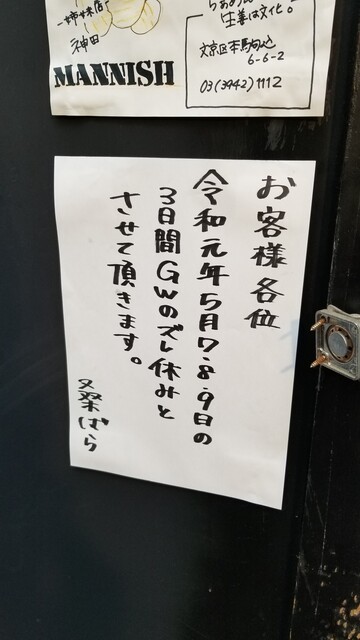 姉妹店
神田
MANNISH
生姜は文化。
文京区本駒込
6-6-2
03(3942)1112
お客様各位
令和元年5月7.8.9日の
3日間GWのズレ休みと
させて頂きます。
ばら